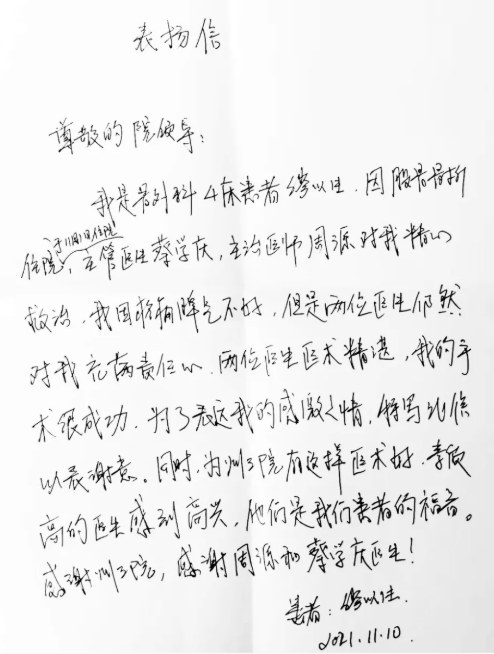 表扬信
尊敬的院领导：
我是骨外科4床患者 以生，因股骨骨折
于11月1日住院
住院，主管医生蔡学庆，主治医师周源对我精心
救治，我因 脾气不好，但是两位医生仍然
对我充满责任心，两位医生医术精湛，我的手
术很成功，为了表达我的感激之情，特写此信
以表谢意。同时，为州三院有这样医术好，素质
高的医生感到高兴，他们是我们患者的福音。
感谢州三院，感谢周源和蔡学庆医生！
患者： 以生
2021.11.10.